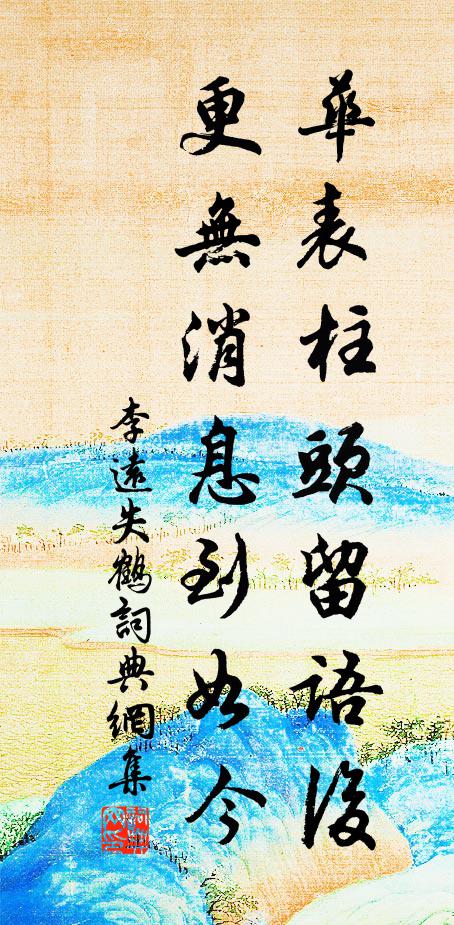 華表柱頭留語後
更無消息到如今
李遠失鶴詞典網集